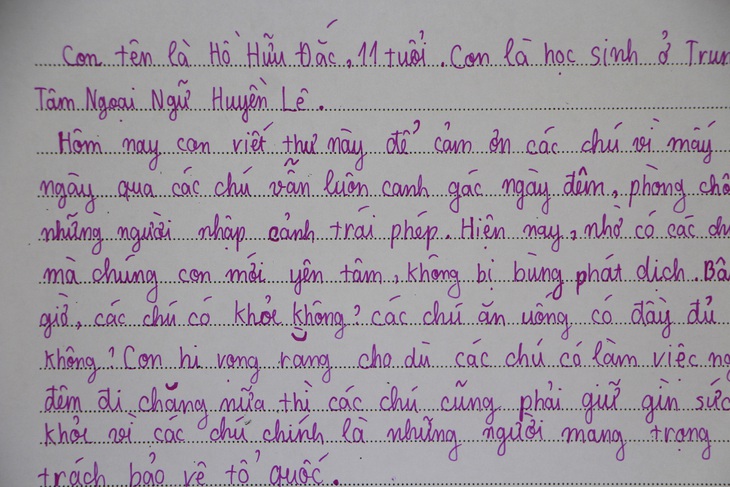 Con tên là Hồ Hữu Đắc, 11 tuổi. Con là học sinh ở Trun
Tâm Ngoại Ngữ Huyền Lê.
Hôm nay con viết thư này để cảm ơn các chú vì mấy
ngày qua các chú vẫn luôn canh gác ngày đêm, phòng chố
những người nhập cảnh trái phép. Hiện nay, nhờ có các ch
mà chúng con mới yên tâm, không bị bùng phát dịch. Bâ
giờ, các chú có khỏe không? các chú ăn uống có đầy đủ
không? Con hi vọng rằng cho dù các chú có làm việc ng
đêm đi chăng nữa thì các chú cũng phải giữ gìn sức
khỏe vì các chú chính là những người mang trọng
trách bảo vệ tổ quốc.